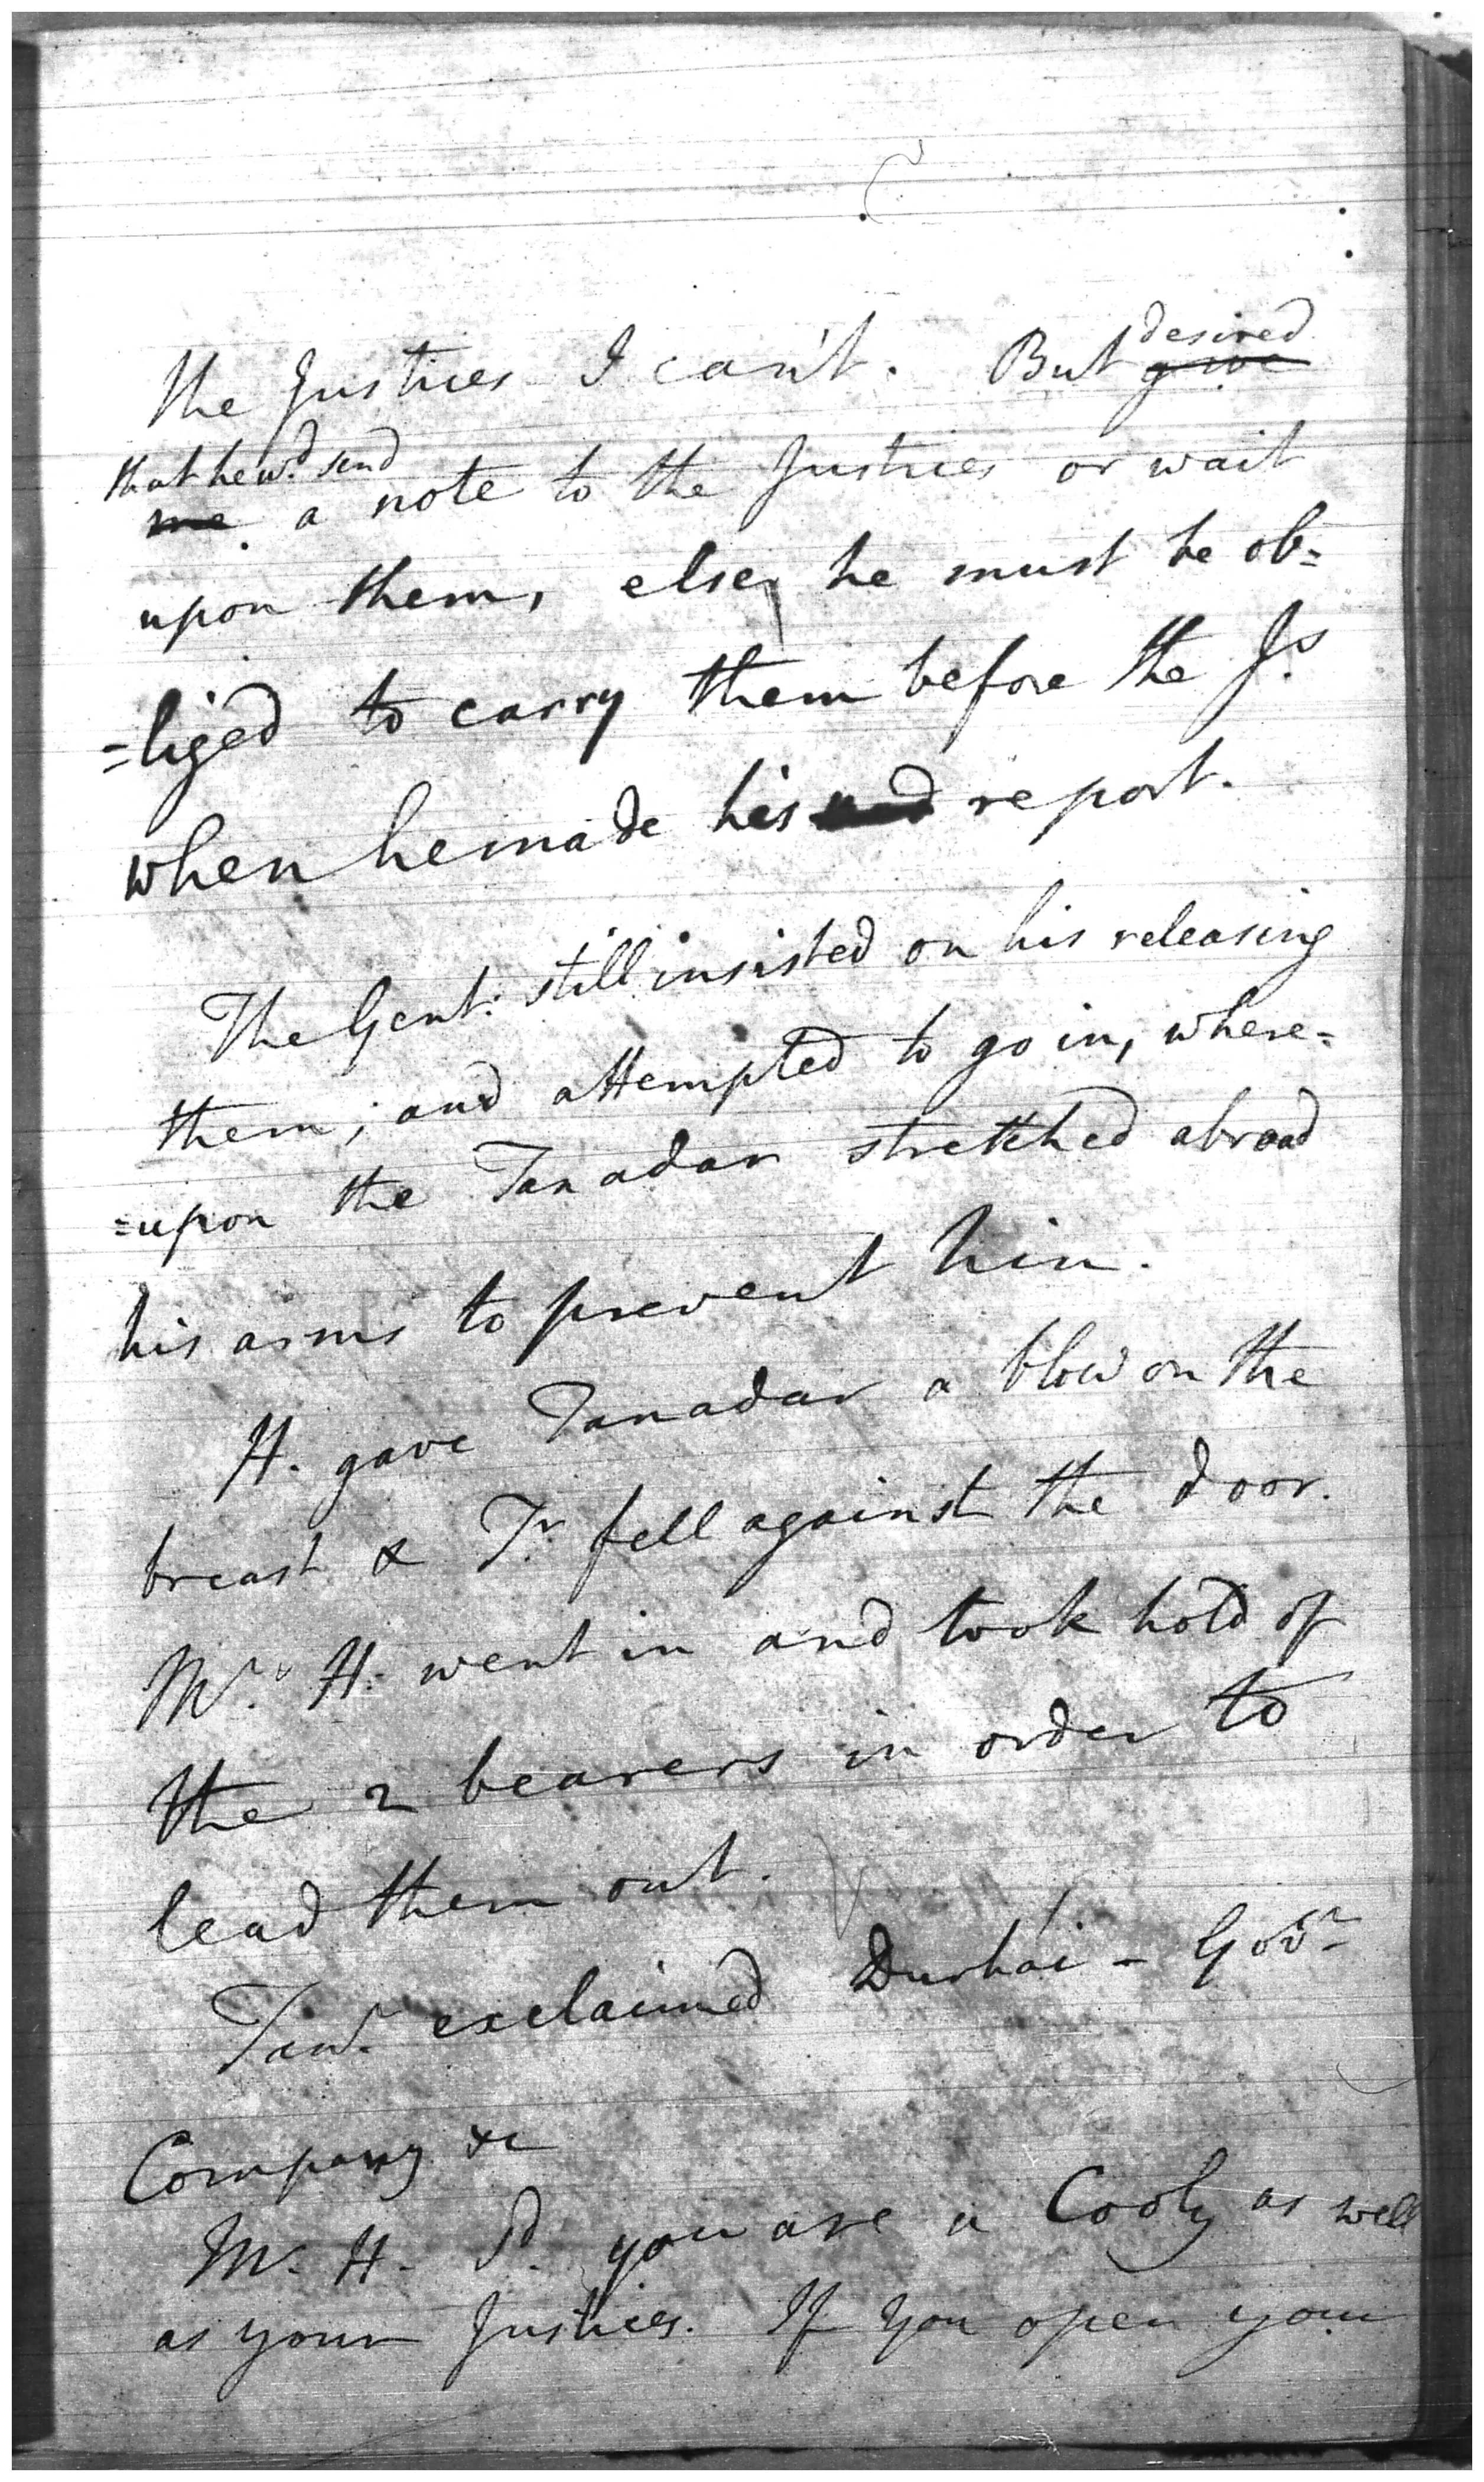 the Justices I can't. But desired give
that he wd. send
me a note to the Justices or wait
upon them, else, he must be ob=
=liged to carry them before the Js.
when he made his report.
The Gent: still insisted on his releasing
them; and attempted to go in, where=
=upon the Tanadar stretched abroad
his arms to prevent him.
H. gave Tanadar a blow on the
breast & Tr. fell against the door.
Mr. H. went in and took hold of
the 2 bearers in order to
lead them out.
Tanr. exclaimed Durhái - Govr.
Company &c
Mr. H. sd. you are a Cooly as well
as your Justices. If you open your